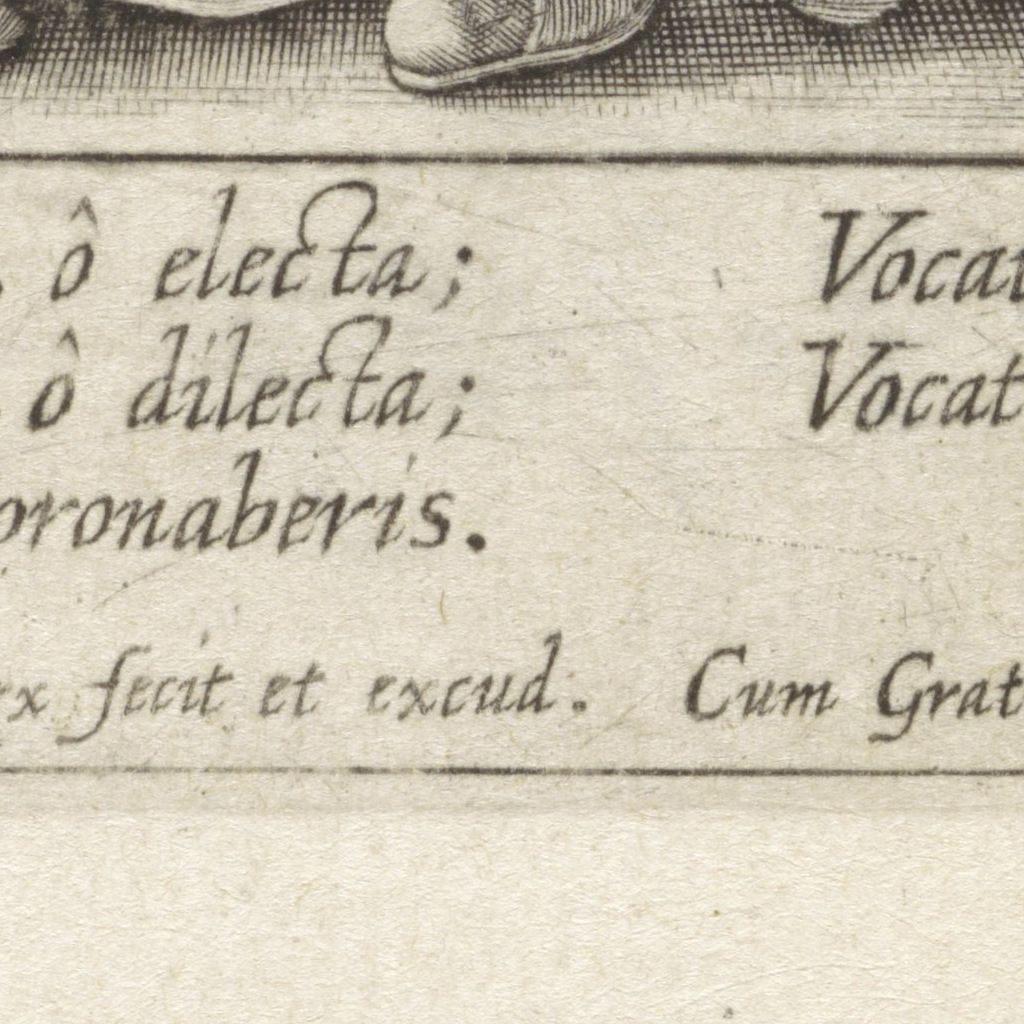 ô electa; Vocat
ô dilecta; Vocat
oronaberis.
ex fecit et excud. Cum Grat